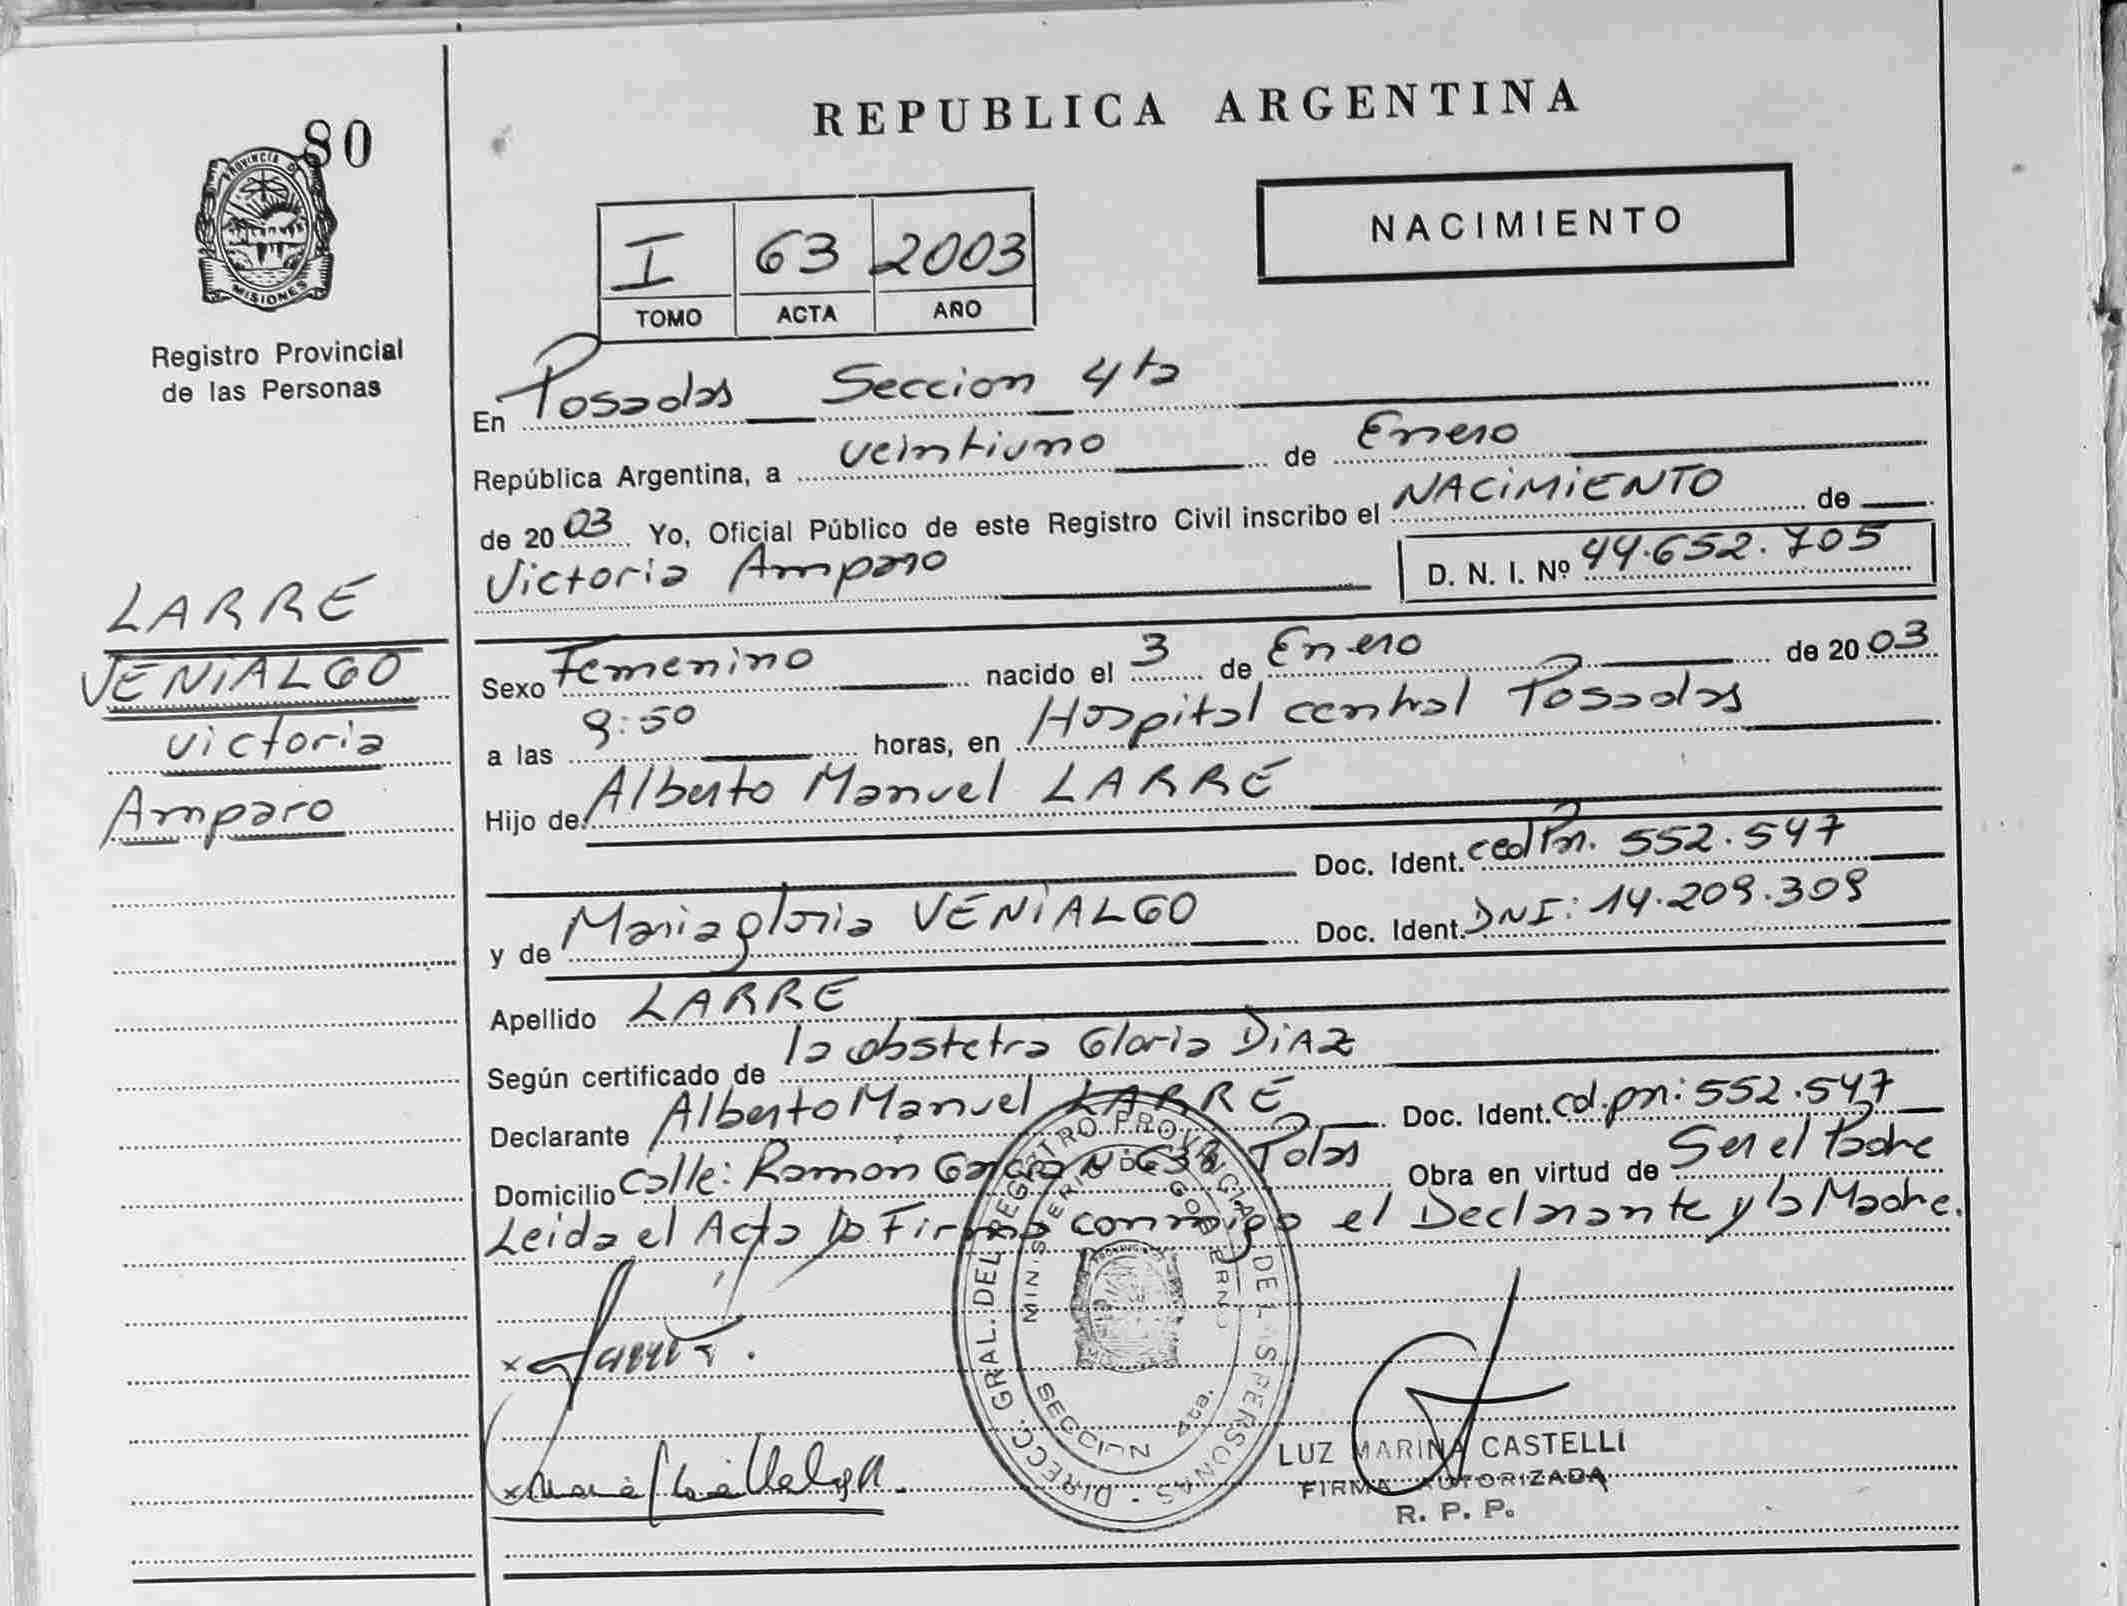 80
PROVINCIA DE
MISIONES
Registro Provincial
de las Personas
LARRE
VENIALGO
Victoria
Amparo
REPUBLICA ARGENTINA
NACIMIENTO
I 63 2003
TOMO ACTA AÑO
En Posadas Seccion 4ta
República Argentina, a veintiuno de Enero
de 2003 Yo, Oficial Público de este Registro Civil inscribo el NACIMIENTO de
Victoria Amparo D. N. I. Nº 44.652.705
Sexo Femenino nacido el 3 de Enero de 2003
a las 9:50 horas, en Hospital central Posadas
Hijo de Alberto Manuel LARRE
Doc. Ident. ced Pn. 552.547
y de Maria gloria VENIALGO Doc. Ident. DNI: 14.209.309
Apellido LARRE
Según certificado de la obstetra Gloria DIAZ
Declarante Alberto Manuel LARRE Doc. Ident. cd.pn: 552.547
Domicilio calle: Ramon Garcia Nº Pdas Obra en virtud de Ser el Padre
Leida el Acta la Firma conmigo el Declarante y la Madre.
DIRECC. GRAL. DEL REGISTRO PROVINCIAL DE LAS PERSONAS
MINISTERIO DE GOBIERNO
SECCION 4ta.
LUZ MARINA CASTELLI
FIRMA AUTORIZADA
R. P. P.